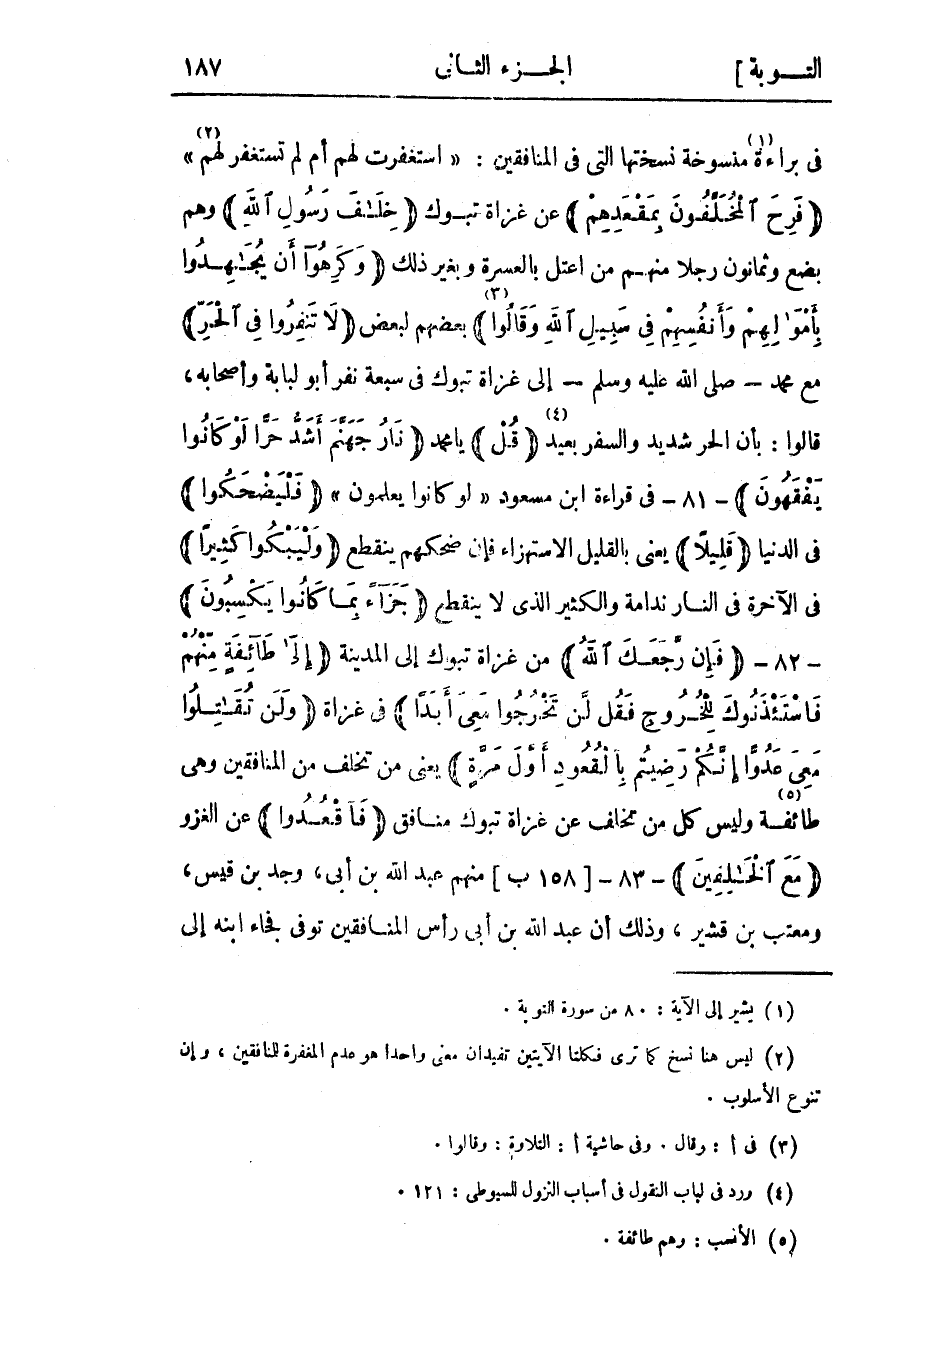 التـوبة ] الجـزء الثانى ١٨٧
فى براءة(١) منسوخة نسختها التى فى المنافقين : « استغفرت لهم أم لم تستغفر لهم(٢) »
﴿ فَرِحَ ٱلْمُخَلَّفُونَ بِمَقْعَدِهِمْ ﴾ عن غزاة تبوك ﴿ خِلَـٰفَ رَسُولِ ٱللَّهِ ﴾ وهم
بضع وثمانون رجلا منهم من اعتل بالعسرة وبغير ذلك ﴿ وَكَرِهُوٓا أَن يُجَـٰهِدُوا
بِأَمْوَٰلِهِمْ وَأَنفُسِهِمْ فِى سَبِيلِ ٱللَّهِ وَقَالُوا(٣) ﴾ بعضهم لبعض ﴿ لَا تَنفِرُوا فِى ٱلْحَرِّ ﴾
مع محمد — صلى الله عليه وسلم — إلى غزاة تبوك فى سبعة نفر أبو لبابة وأصحابه،
قالوا : بأن الحر شديد والسفر بعيد(٤) ﴿ قُلْ ﴾ يامحمد ﴿ نَارُ جَهَنَّمَ أَشَدُّ حَرًّا لَوْ كَانُوا
يَفْقَهُونَ ﴾ - ٨١ - فى قراءة ابن مسعود « لو كانوا يعلمون » ﴿ فَلْيَضْحَكُوا ﴾
فى الدنيا ﴿ قَلِيلًا ﴾ يعنى بالقليل الاستهزاء فإن ضحكهم ينقطع ﴿ وَلْيَبْكُوا كَثِيرًا ﴾
فى الآخرة فى النـار ندامة والكثير الذى لا ينقطع ﴿ جَزَآءً بِمَا كَانُوا يَكْسِبُونَ ﴾
- ٨٢ - ﴿ فَإِن رَّجَعَـكَ ٱللَّهُ ﴾ من غزاة تبوك إلى المدينة ﴿ إِلَىٰ طَآئِفَةٍ مِّنْهُمْ
فَاسْتَئْذَنُوكَ لِلْخُرُوجِ فَقُل لَّن تَخْرُجُوا مَعِىَ أَبَدًا ﴾ فى غزاة ﴿ وَلَن تُقَـٰتِلُوا
مَعِىَ عَدُوًّا إِنَّكُمْ رَضِيتُم بِٱلْقُعُودِ أَوَّلَ مَرَّةٍ ﴾ يعنى من تخلف من المنافقين وهى
طائفة(٥) وليس كل من تخلف عن غزاة تبوك منـافق ﴿ فَٱقْعُدُوا ﴾ عن الغزو
﴿ مَعَ ٱلْخَـٰلِفِينَ ﴾ - ٨٣ - [ ١٥٨ ب ] منهم عبد الله بن أبى، وجد بن قيس،
ومعتب بن قشير ، وذلك أن عبد الله بن أبى رأس المنـافقين توفى فجاء ابنه إلى
(١) يشير إلى الآية : ٨٠ من سورة التوبة .
(٢) ليس هنا نسخ كما ترى فكلتا الآيتين تفيدان معنى واحدا هو عدم المغفرة للمنافقين ، وإن
تنوع الأسلوب .
(٣) فى أ : وقال . وفى حاشية أ : التلاوة : وقالوا .
(٤) ورد فى لباب النقول فى أسباب النزول للسيوطى : ١٢١ .
(٥) الأنسب : وهم طائفة .